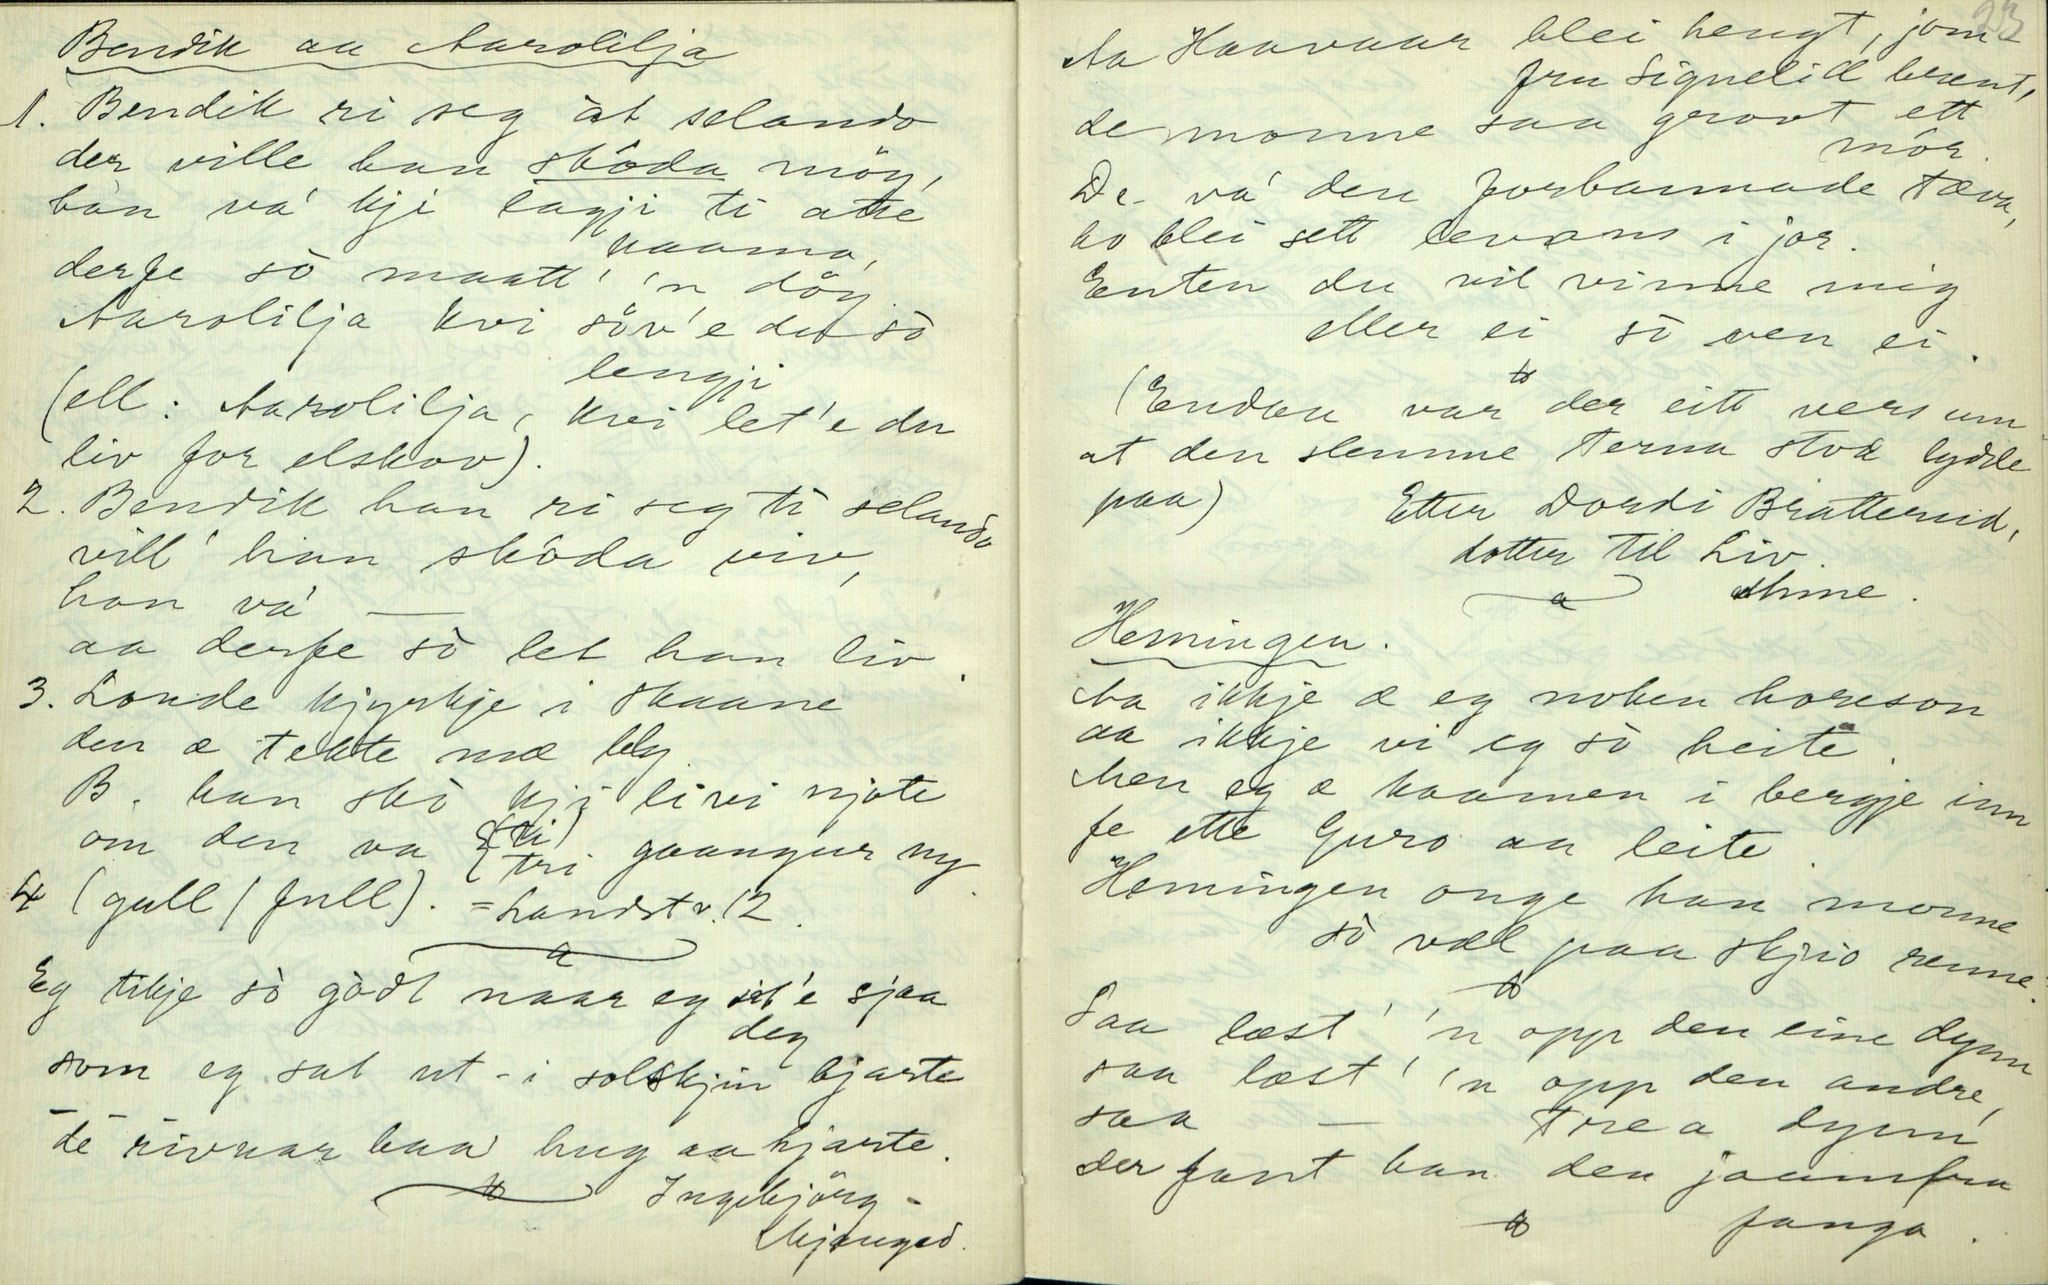 Bendik aa Aarolilja
1. Bendik ri seg àt selando
der ville han skôda möy,
hàn va' kji lagji ti atte
kaama,
derfe sò maatt' 'n döy.
Aarolilja kvi söv'e du sò
lengji
(ell: Aarolilja, kvi let'e du
liv for elskov).
2. Bendik han ri seg ti selando
vill' han skôda viv,
han va' —
aa derfe sò let han liv.
3. Londe kjyrkje i Skaane
den æ tekte mæ bly.
B. han skò kji livi njote
om den va (ti) gaangur ny
tri
4 (gull / full). = Landst v. 12.
Eg tikje sò gòdt naar eg sit'e sjaa
deg
som eg sat ut-i solskjin bjarte
de rivnar baa hug aa hjarte.
Ingebjörg
23
Aa Haavaar blei hengt, jom-
fru Signelid brent,
de monne saa grovt ett
mór.
De va' den forbannade tæva,
ho blei sett levans i jor.
Enten du vil vinne mig
eller ei sò ven ei.
(Endaa var der eitt vers um
at den slemme terna stod lydde
paa)
Etter Dordi Bratterud,
dotter til Liv
Heningen.
Aa ikkje æ eg noken horeson
aa ikkje vi eg sò heite.
Men eg æ kaamen i bergje inn
fe ette Guro aa leite.
Hemingen onge han monne
sò væl paa skjio renne.
Saa læst' 'n opp den eine dynn
saa læst' 'n opp den andre,
saa — trea dynn'
der fant han den jaamfru
fanga.